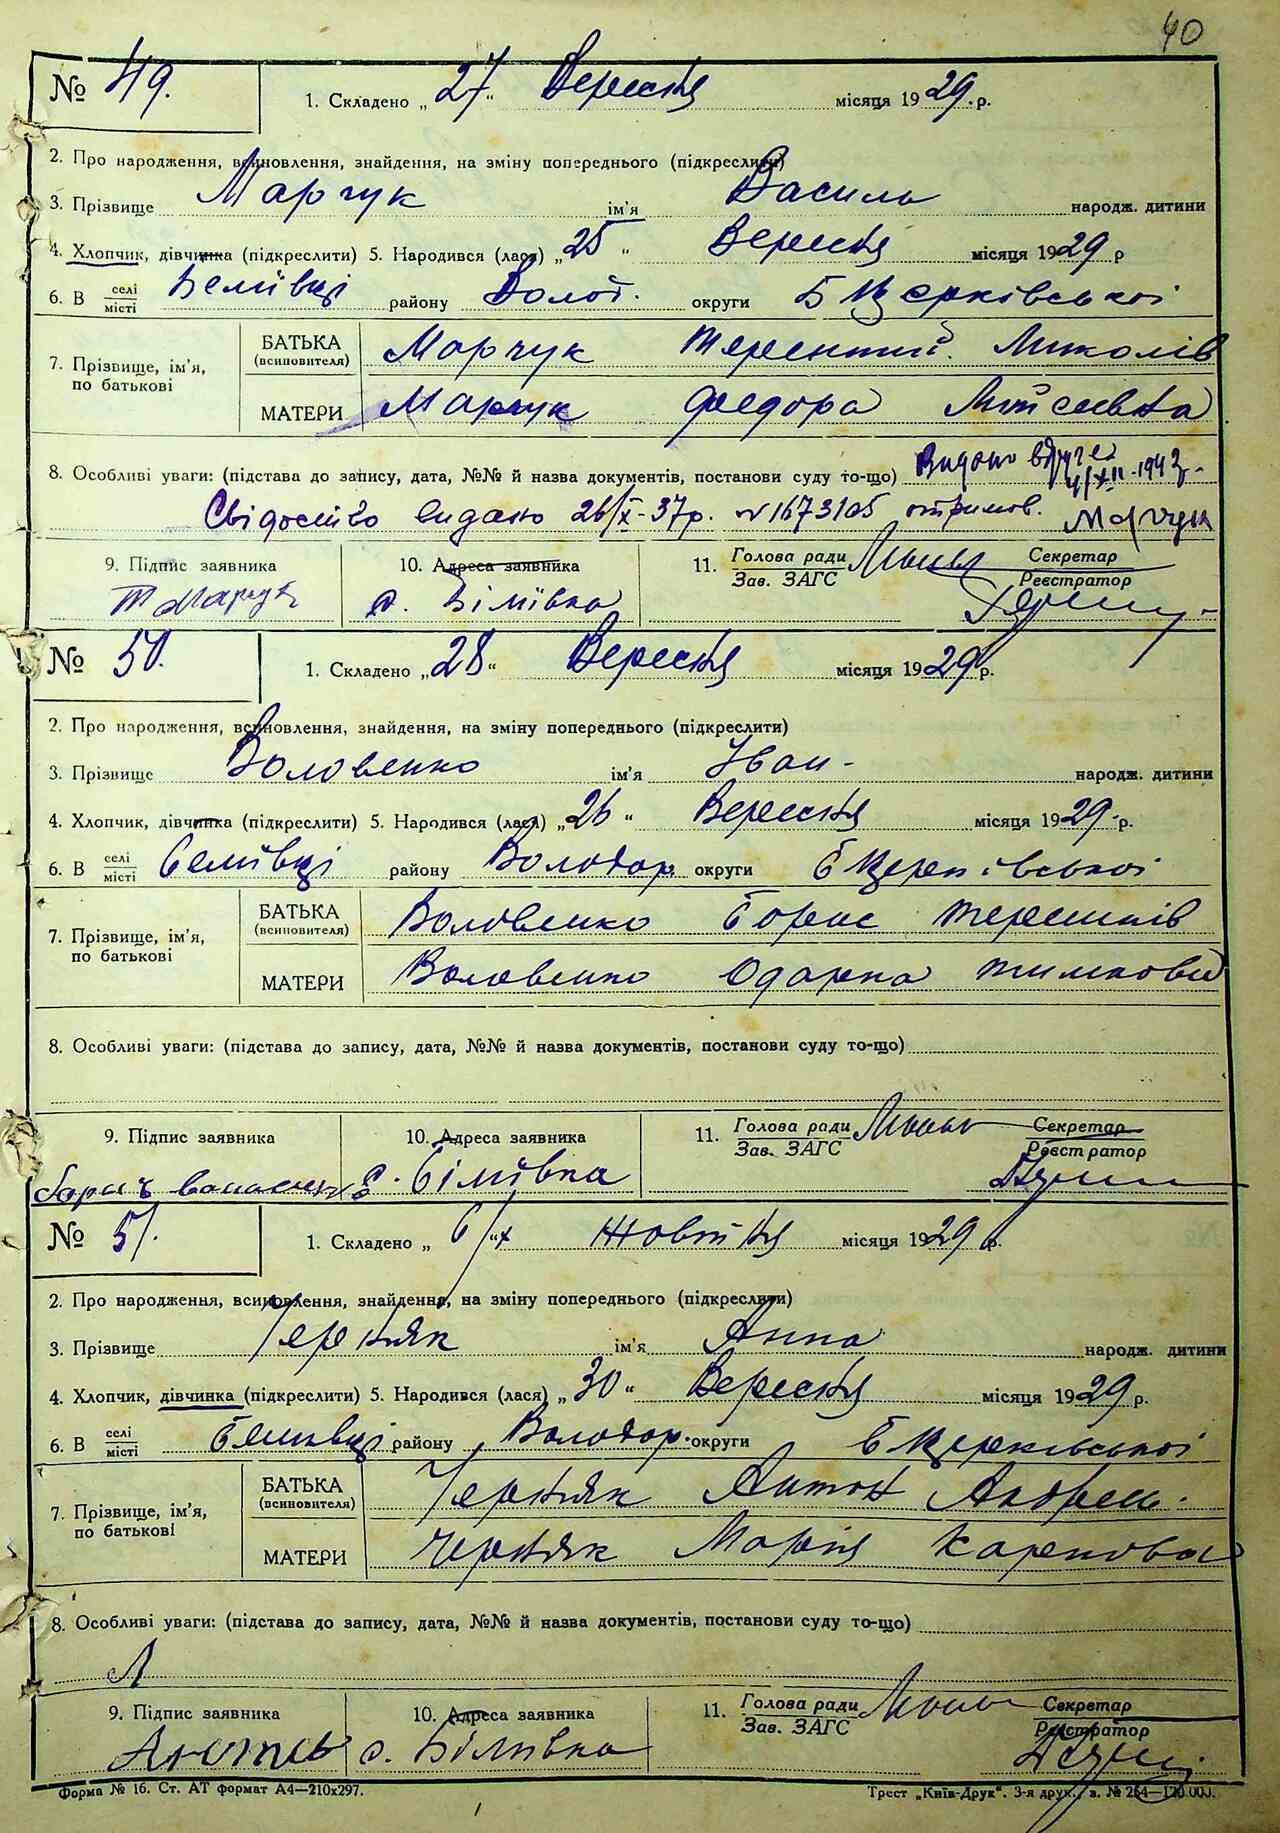 40
№ 49. 1. Складено „27" Вересня місяця 1929 р.
2. Про народження, всиновлення, знайдення, на зміну попереднього (підкреслити)
3. Прізвище Марчук ім'я Василь народж. дитини
4. Хлопчик, дівчинка (підкреслити) 5. Народився (лася) „25" Вересня місяця 1929 р
6. В селі місті району Волод. округи Б Церківської
7. Прізвище, ім'я, по батькові БАТЬКА (всиновителя) Марчук Терентий Миколів
МАТЕРИ Марчук Федора Мойсеївна
8. Особливі уваги: (підстава до запису, дата, №№ й назва документів, постанови суду то-що) Видано вдруге
4/XII-1943
Свідоство видано 26/X-37р. № 1673105 отримов. Марчук
9. Підпис заявника 10. Адреса заявника 11. Голова ради Зав. ЗАГС Секретар Реєстратор
Т Марчук с. Білиївка
№ 50. 1. Складено „28" Вересня місяця 1929 р.
2. Про народження, всиновлення, знайдення, на зміну попереднього (підкреслити)
3. Прізвище Воловенко ім'я Іван народж. дитини
4. Хлопчик, дівчинка (підкреслити) 5. Народився (лася) „26" Вересня місяця 1929 р.
6. В селі місті району Володар. округи Б Церківської
7. Прізвище, ім'я, по батькові БАТЬКА (всиновителя) Воловенко Борис Терентів
МАТЕРИ Воловенко Одарка Тимкова
8. Особливі уваги: (підстава до запису, дата, №№ й назва документів, постанови суду то-що)
9. Підпис заявника 10. Адреса заявника 11. Голова ради Зав. ЗАГС Секретар Реєстратор
с. Білиївка
№ 51. 1. Складено „6/X" Жовтня місяця 1929 р.
2. Про народження, всиновлення, знайдення, на зміну попереднього (підкреслити)
3. Прізвище Черняк ім'я Анна народж. дитини
4. Хлопчик, дівчинка (підкреслити) 5. Народився (лася) „30" Вересня місяця 1929 р.
6. В селі місті району Володар. округи Б Церківської
7. Прізвище, ім'я, по батькові БАТЬКА (всиновителя) Черняк Антон Андрее.
МАТЕРИ Черняк Марія Карпова
8. Особливі уваги: (підстава до запису, дата, №№ й назва документів, постанови суду то-що)
9. Підпис заявника 10. Адреса заявника 11. Голова ради Зав. ЗАГС Секретар Реєстратор
с. Білиївка
Форма № 16. Ст. АТ формат А4—210х297. Трест „Київ-Друк". 3-я друк., з. № 264—120.000.